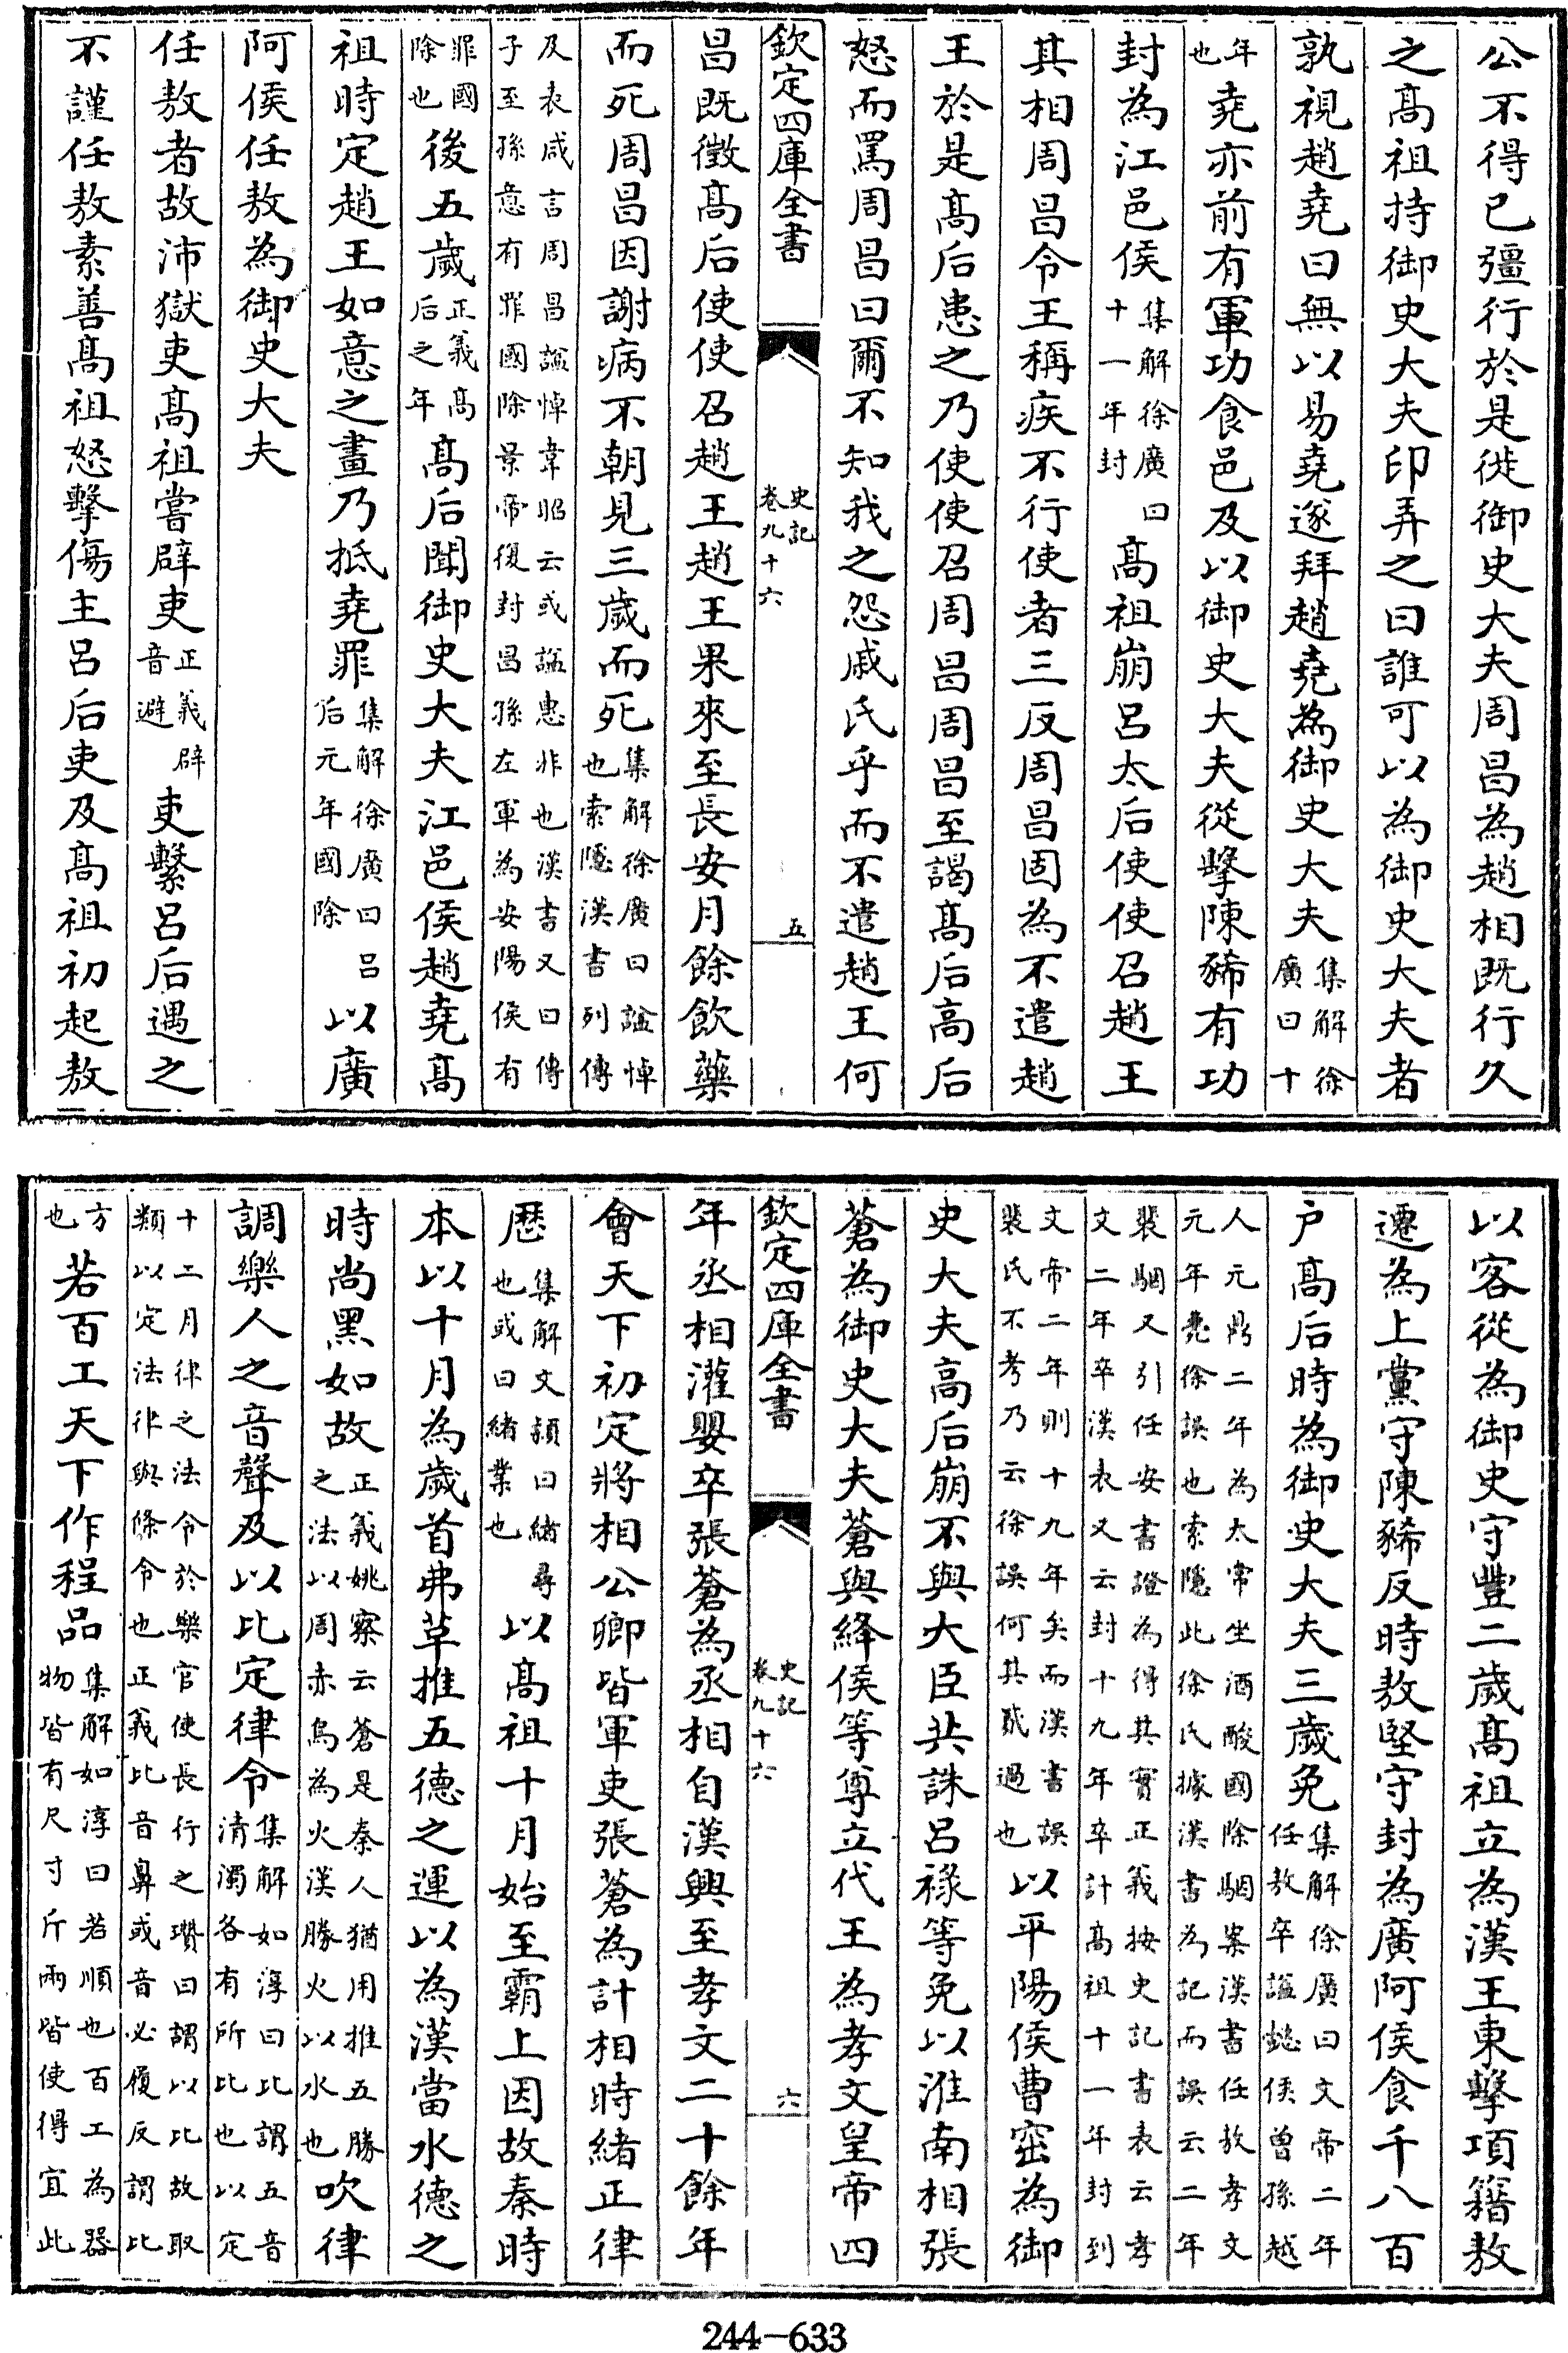 公不得已彊行於是徙御史大夫周昌為趙相既行久
之髙祖持御史大夫印弄之曰誰可以為御史大夫者
孰視趙堯曰無以易堯遂拜趙堯為御史大夫集解徐廣曰十
年也堯亦前有軍功食邑及以御史大夫從擊陳豨有功
封為江邑侯集解徐廣曰十一年封髙祖崩吕太后使使召趙王
其相周昌令王稱疾不行使者三反周昌固為不遣趙
王於是髙后患之乃使使召周昌周昌至謁髙后髙后
怒而罵周昌曰爾不知我之怨戚氏乎而不遣趙王何
欽定四庫全書 史記卷九十六 五
昌既徵髙后使使召趙王趙王果來至長安月餘飲藥
而死周昌因謝病不朝見三歲而死集解徐廣曰諡悼也索隱漢書列傳
及表咸言周昌諡悼韋昭云或諡惠非也漢書又曰傳子至孫意有罪國除景帝復封昌孫左軍為安陽侯有
罪國除也後五歲正義髙后之年髙后聞御史大夫江邑侯趙堯髙
祖時定趙王如意之畫乃抵堯罪集解徐廣曰吕后元年國除以廣
阿侯任敖為御史大夫
任敖者故沛獄吏髙祖嘗辟吏正義辟音避吏繫吕后遇之
不謹任敖素善髙祖怒擊傷主吕后吏及髙祖初起敖
以客從為御史守豐二歲髙祖立為漢王東擊項籍敖
遷為上黨守陳豨反時敖堅守封為廣阿侯食千八百
户髙后時為御史大夫三歲免集解徐廣曰文帝二年任敖卒諡懿侯曾孫越
人元鼎二年為太常坐酒酸國除駰案漢書任敖孝文元年薨徐誤也索隱此徐氏據漢書為記而誤云二年
裴駰又引任安書證為得其實正義按史記書表云孝文二年卒漢表又云封十九年卒計高祖十一年封到
文帝二年則十九年矣而漢書誤裴氏不考乃云徐誤何其貳過也以平陽侯曹窋為御
史大夫高后崩不與大臣共誅吕祿等免以淮南相張
蒼為御史大夫蒼與絳侯等尊立代王為孝文皇帝四
欽定四庫全書 史記卷九十六 六
年丞相灌嬰卒張蒼為丞相自漢興至孝文二十餘年
會天下初定將相公卿皆軍吏張蒼為計相時緒正律
厯集解文頴曰緒尋也或曰緒業也以髙祖十月始至霸上因故秦時
本以十月為歲首弗革推五德之運以為漢當水德之
時尚黑如故正義姚察云蒼是秦人猶用推五勝之法以周赤烏為火漢勝火以水也吹律
調樂人之音聲及以比定律令集解如淳曰比謂五音清濁各有所比也以定
十二月律之法令於樂官使長行之瓉曰謂以比故取類以定法律與條令也正義比音鼻或音必履反謂比
方也若百工天下作程品集解如淳曰若順也百工為器物皆有尺寸斤兩皆使得宜此
244-633